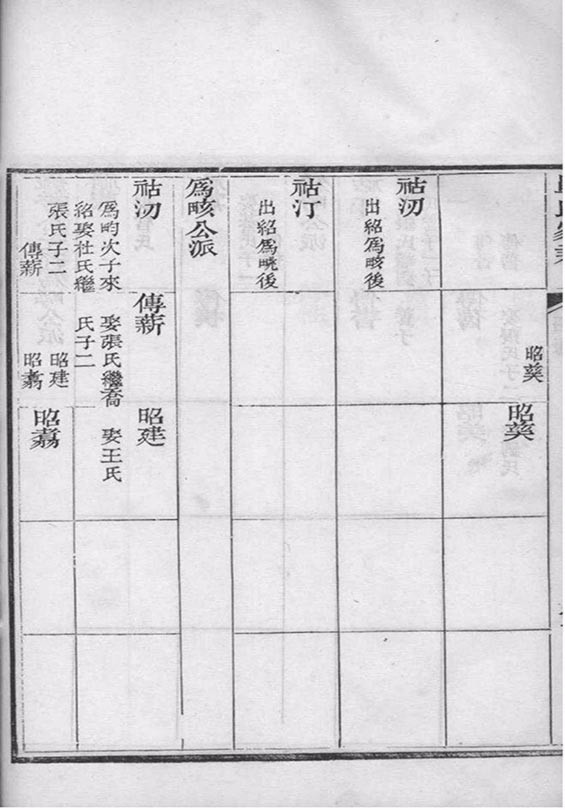 昭葵
昭葵
祜沕
出紹爲畡後
祜汀
出紹爲畯後
爲畡公派
祜沕
爲畇次子來
紹娶杜氏繼
張氏子二
傳薪
傳薪
娶張氏繼喬
氏子二
昭建
昭翥
昭建
娶王氏
昭翥